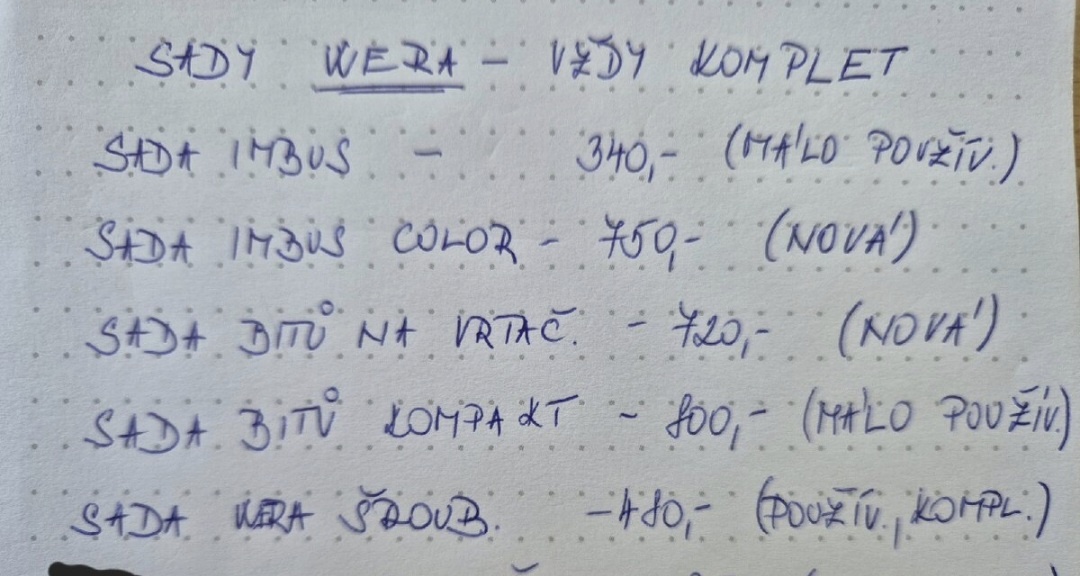 SADY WERA - VŽDY KOMPLET
SADA IMBUS - 340,- (MÁLO POUŽÍV.)
SADA IMBUS COLOR - 750,- (NOVÁ)
SADA BITŮ NA VRTAČ. - 720,- (NOVÁ)
SADA BITŮ KOMPAKT - 800,- (MÁLO POUŽÍV.)
SADA WERA ŠROUB. - 480,- (POUŽÍV., KOMPL.)